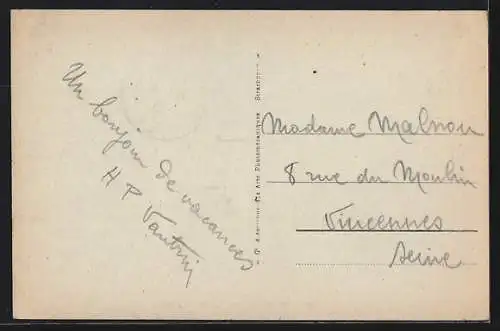 Un bonjour de vacances
H P Vautrin
Arts Photomécaniques Strasbourg
Madame Malnou
8 rue du Moulin
Vincennes
Seine